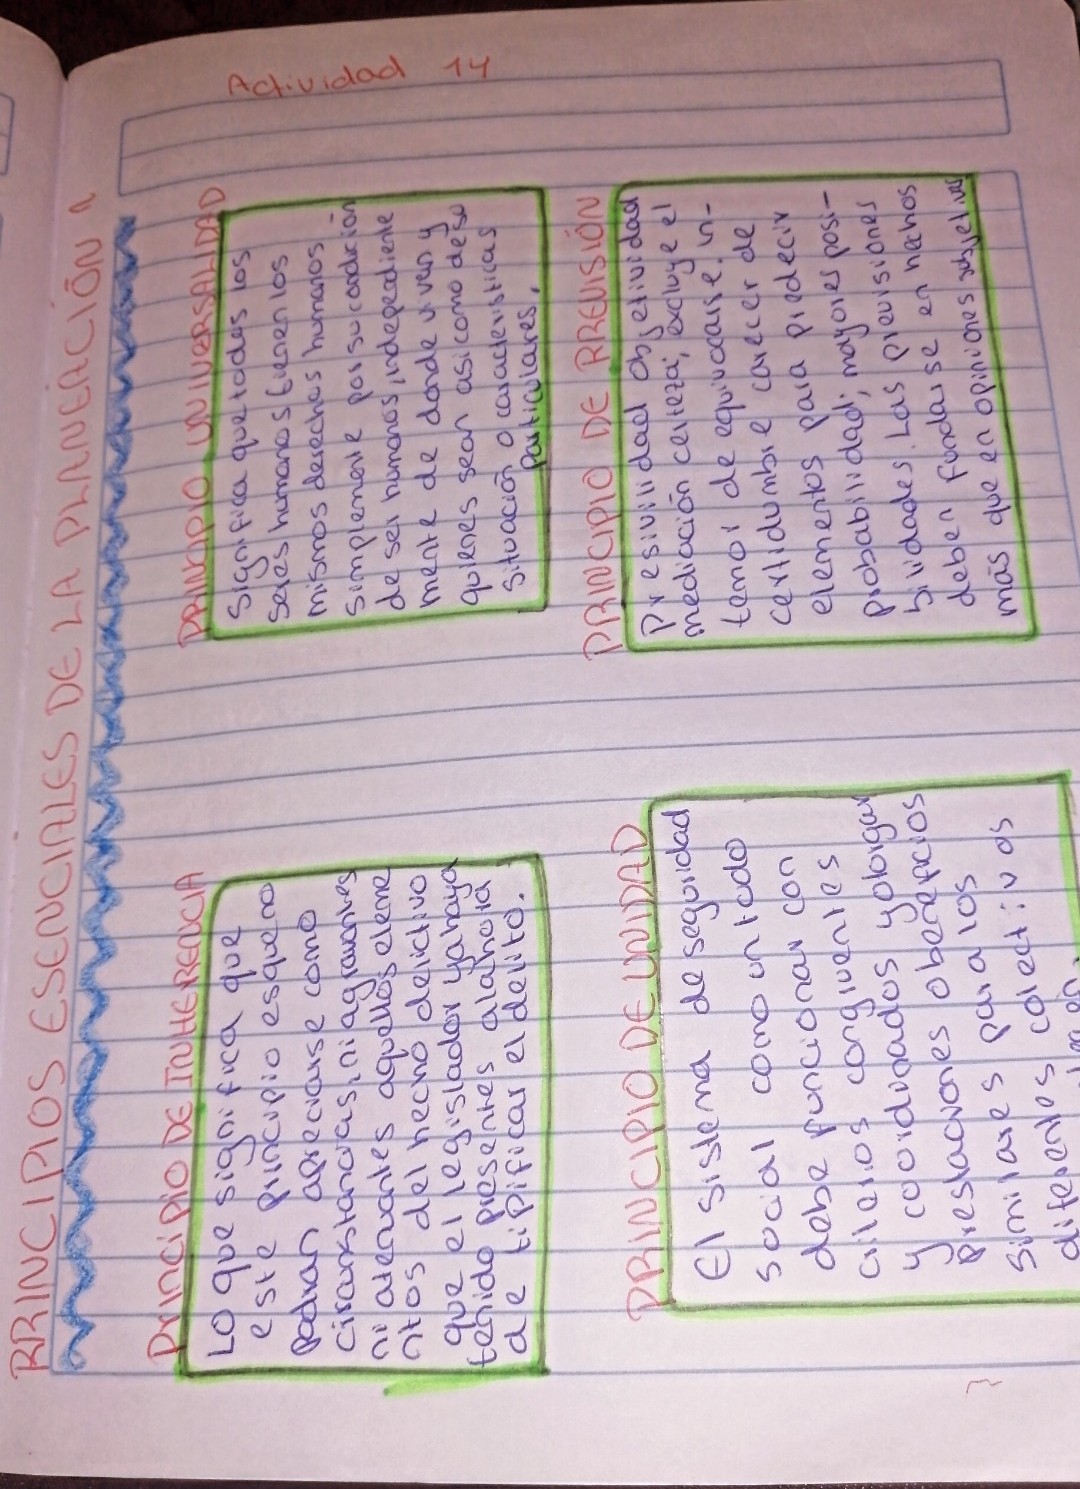 Actividad 14
PRINCIPIOS ESENCIALES DE LA PLANEACIÓN
Principio DE INHERENCIA
LO que significa que
este principio es que no
podran apreciarse como
circunstancias, ni agravantes
ni atenuantes aquellos eleme
ntos del hecho delictivo
que el legislador ya haya
tenido presentes ala hora
de tipificar el delito.
PRINCIPIO UNIVERSALIDAD
significa que todos los
seres humanos tienen los
mismos derechos humanos
simplemente por su condición
de ser humanos, independiente
mente de donde viven y
quienes sean asi como de su
situación o caracteristicas
particulares,
PRINCIPIO DE UNIDAD
El sistema de seguridad
social como un todo
debe funcionar con
criterios congruentes
y coordinados y otorgar
prestaciones o beneficios
similares para los
diferentes colectivos
PRINCIPIO DE PREVISIÓN
Presivilidad objetividad
medición certeza; excluye el
temor de equivocarse. in-
certidumbre carecer de
elementos para predecir
probabilidad; mayores posi-
bilidades. Las previsiones
deben fundarse en hechos
más que en opiniones subjetivas